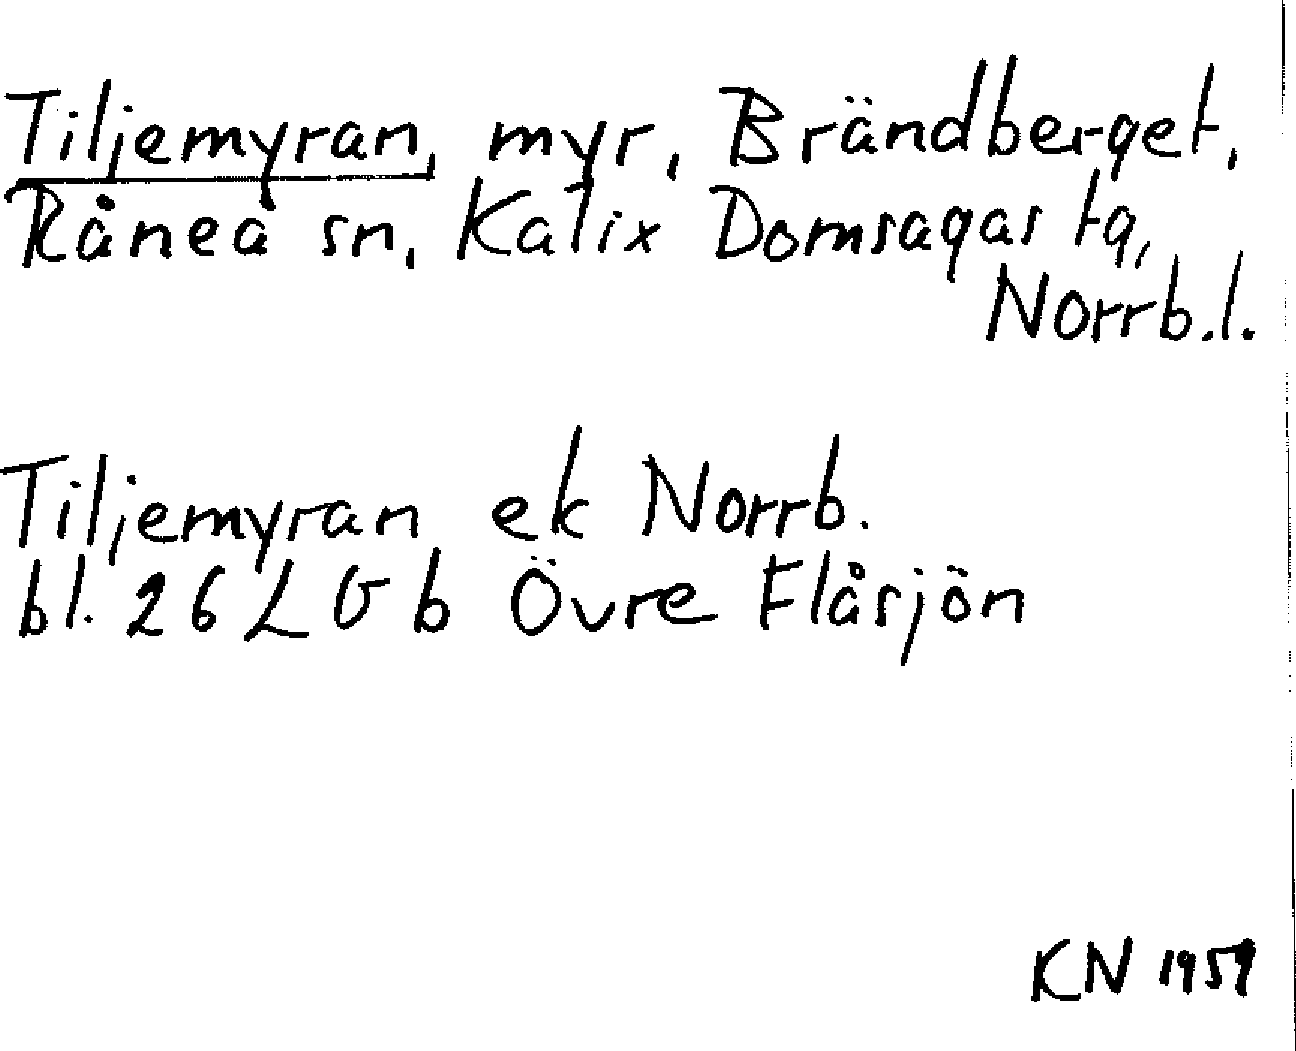 Tiljemyran, myr, Brändberget,
Råneå sn, Kalix Domsagas tg,
Norrb.l.
Tiljemyran ek Norrb.
bl. 26 L G b Övre Flåsjön
KN 1959